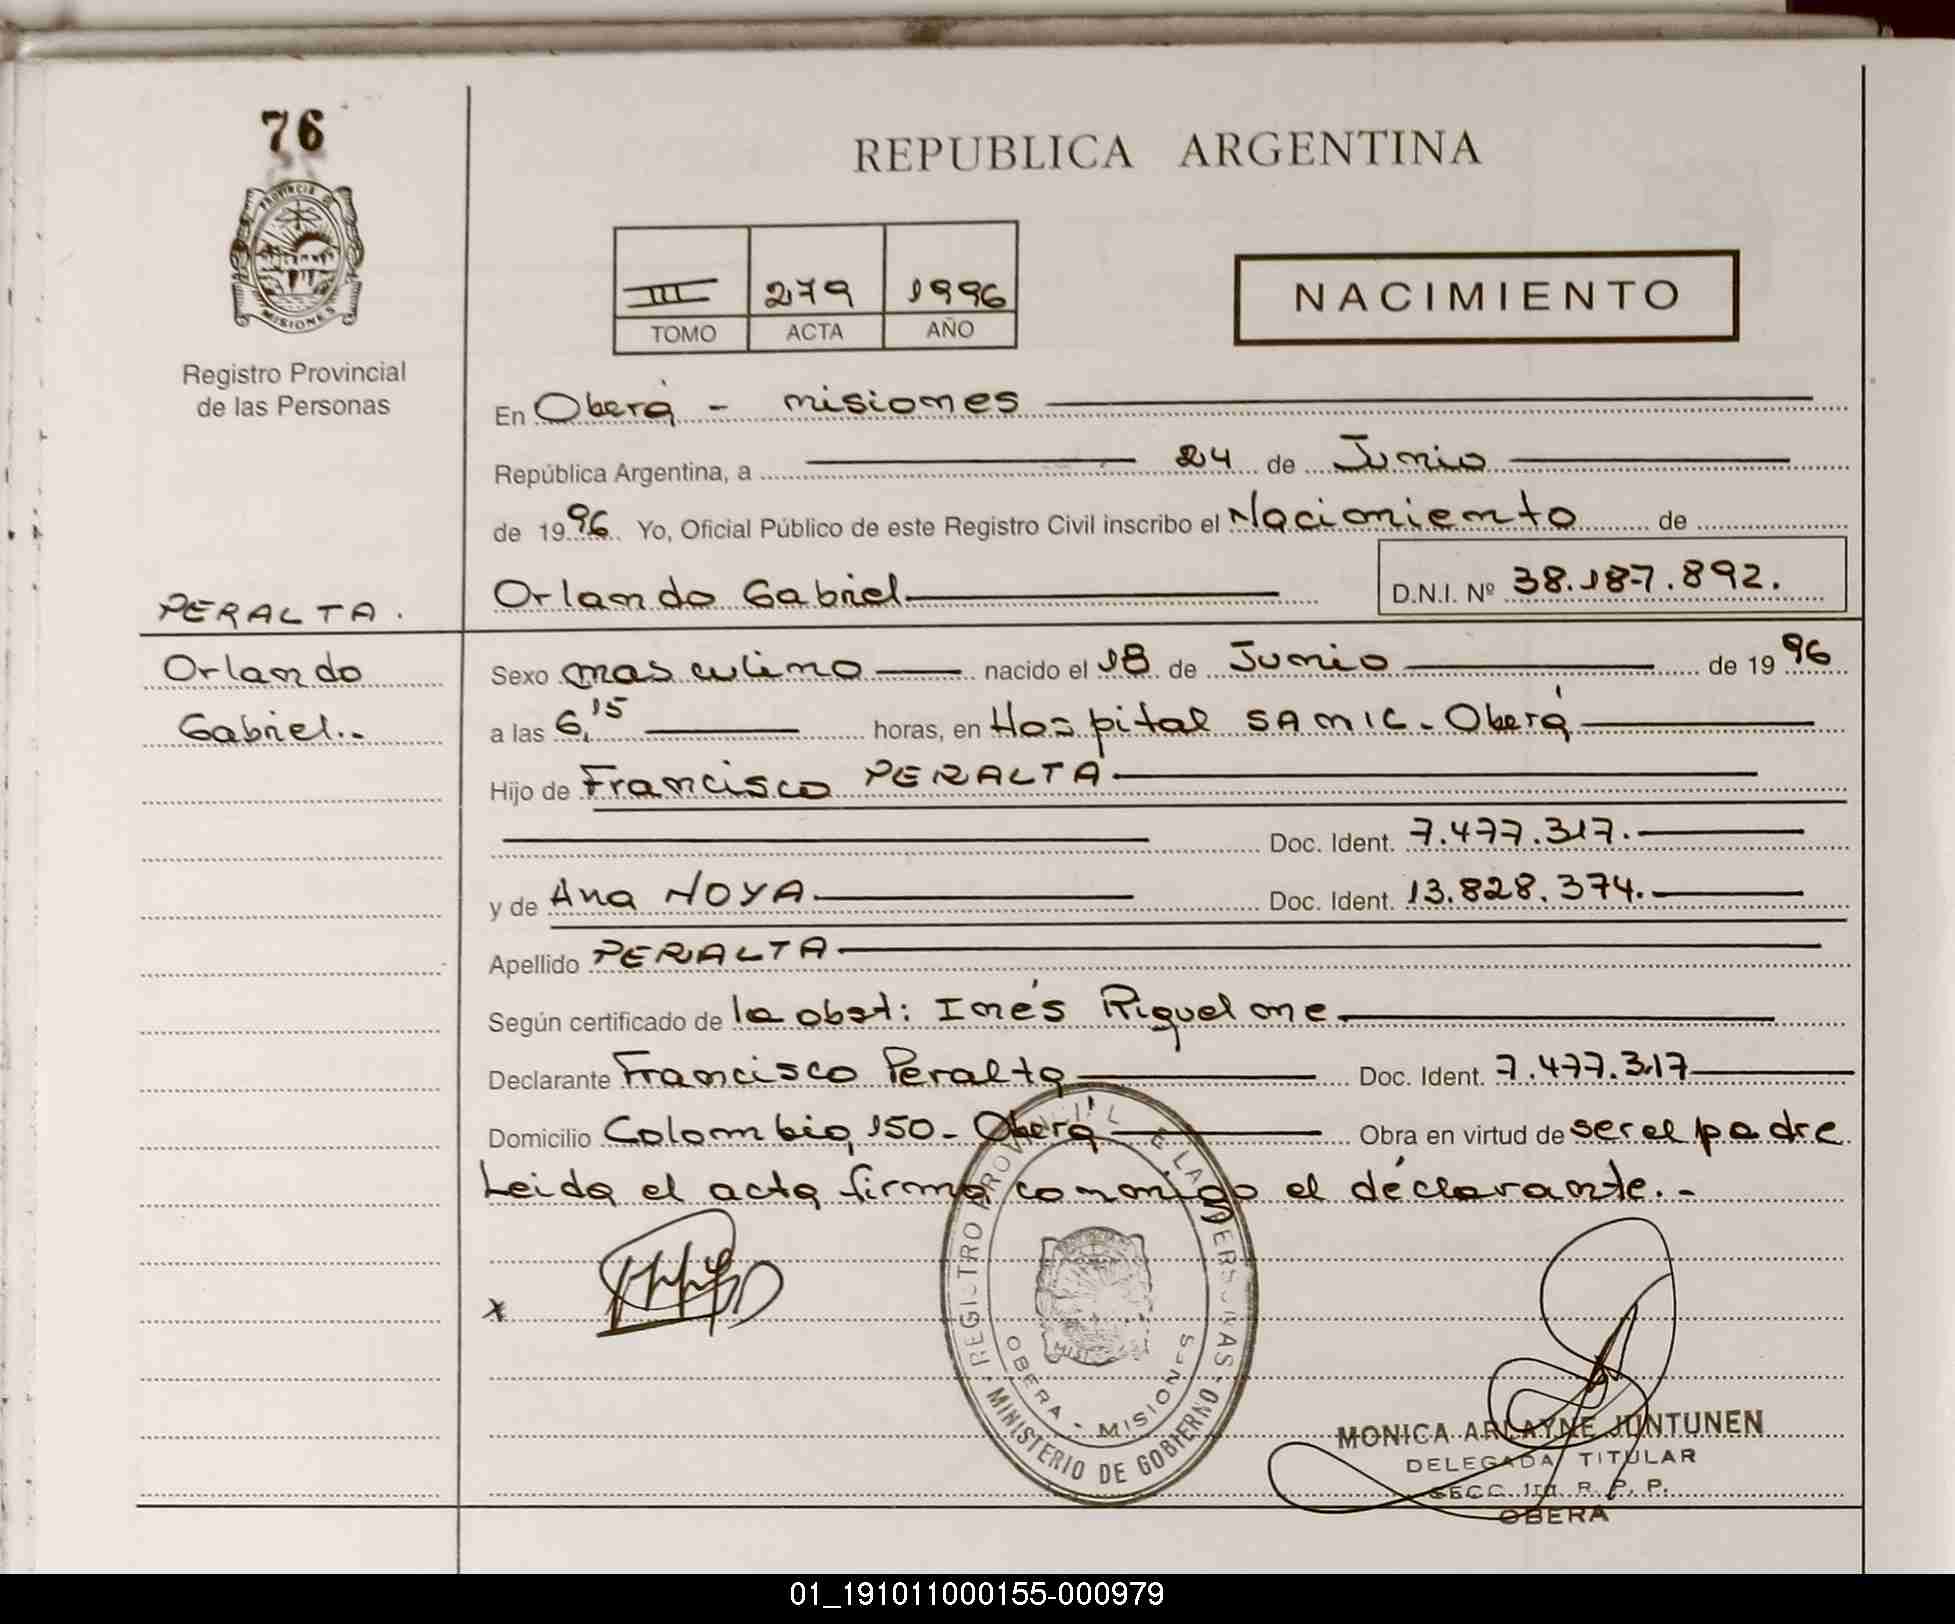 76
PROVINCIA DE
MISIONES
Registro Provincial
de las Personas
REPUBLICA ARGENTINA
III 279 1996
TOMO ACTA AÑO
NACIMIENTO
En Oberá - misiones
República Argentina, a 24 de Junio
de 1996 Yo, Oficial Público de este Registro Civil inscribo el Nacimiento de
PERALTA. Orlando Gabriel D.N.I. Nº 38.187.892.
Orlando Sexo masculino nacido el 18 de Junio de 1996
Gabriel.- a las 6,15 horas, en Hospital SAMIC - Oberá
Hijo de Francisco PERALTA
Doc. Ident. 7.477.317.
y de Ana NOYA Doc. Ident. 13.828.374.
Apellido PERALTA
Según certificado de la obst: Inés Riquelme
Declarante Francisco Peralta Doc. Ident. 7.477.317
Domicilio Colombia 150 - Oberá Obra en virtud de ser el padre
Leida el acta firma conmigo el declarante.-
x
REGISTRO PROVINCIAL DE LAS PERSONAS
OBERA - MISIONES
MINISTERIO DE GOBIERNO
MONICA ARLAYNE JUNTUNEN
DELEGADA TITULAR
SECC. 1ra R. P. P.
OBERA
01_191011000155-000979